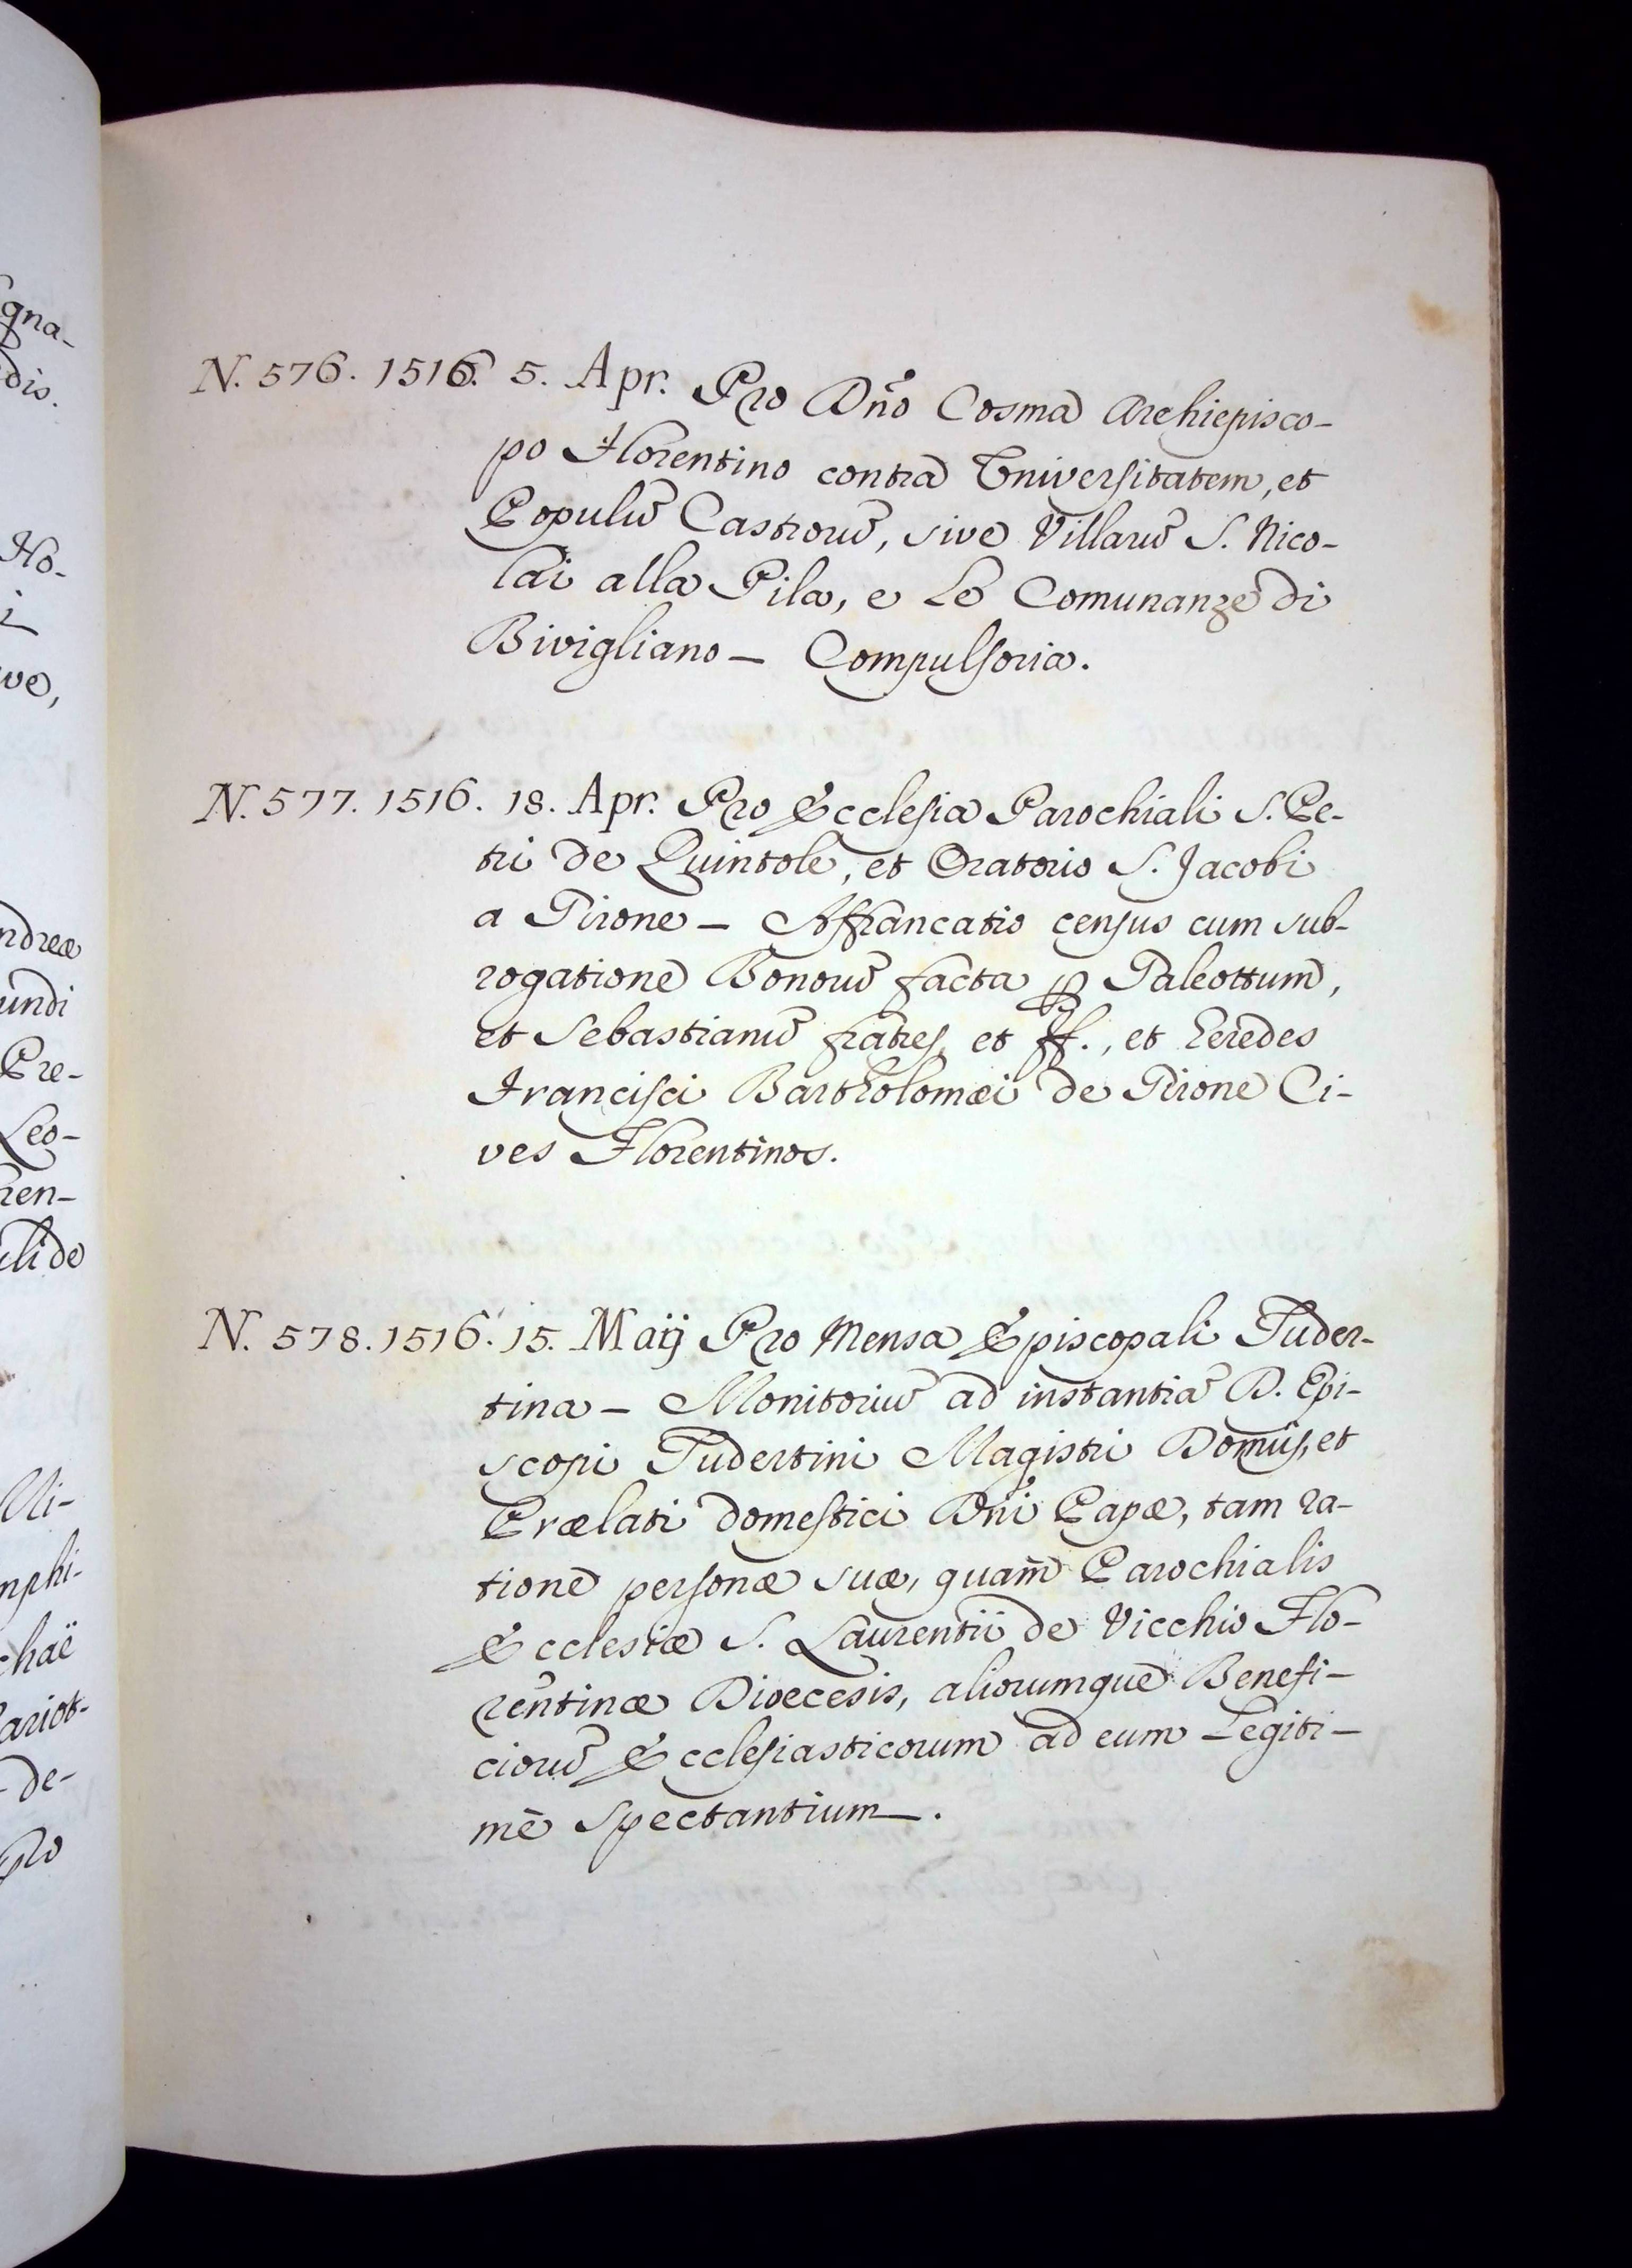 gna-
dis.
Ho-
i
ve,
ndreæ
undi
Pre-
Leo-
ren-
uli de
Mi-
mphi-
chaë
ariot-
de-
pro
N. 576. 1516. 5. Apr. Pro Dño Cosma Archiepisco-
po Florentino contra Universitatem, et
Populũ Castrorũ, sive Villarũ S. Nico-
lai alla Pila, e Le Comunanze di
Bivigliano – Compulsoria.
N. 577. 1516. 18. Apr. Pro Ecclesia Parochiali S. Pe-
tri de Quintole, et Oratorio S. Jacobi
a Pirone – Affrancatio census cum sub-
rogatione Bonorũ facta ꝑ Paleottum,
et Sebastianũ fratres, et ff., et heredes
Francisci Bartholomæi de Pirone Ci-
ves Florentinos.
N. 578. 1516. 15. Maÿ Pro Mensa Episcopali Tuder-
tina – Monitoriũ ad instantiã D. Epi-
scopi Tudertini Magistri Domûs, et
Prælati domestici Dñi Papæ, tam ra-
tione personæ suæ, quam̃ Parochialis
Ecclesiæ S. Laurentii de Vicchio Flo-
rentinæ Dioecesis, aliorumque Benefi-
ciorũ Ecclesiasticorum ad eum Legiti-
mè spectantium.